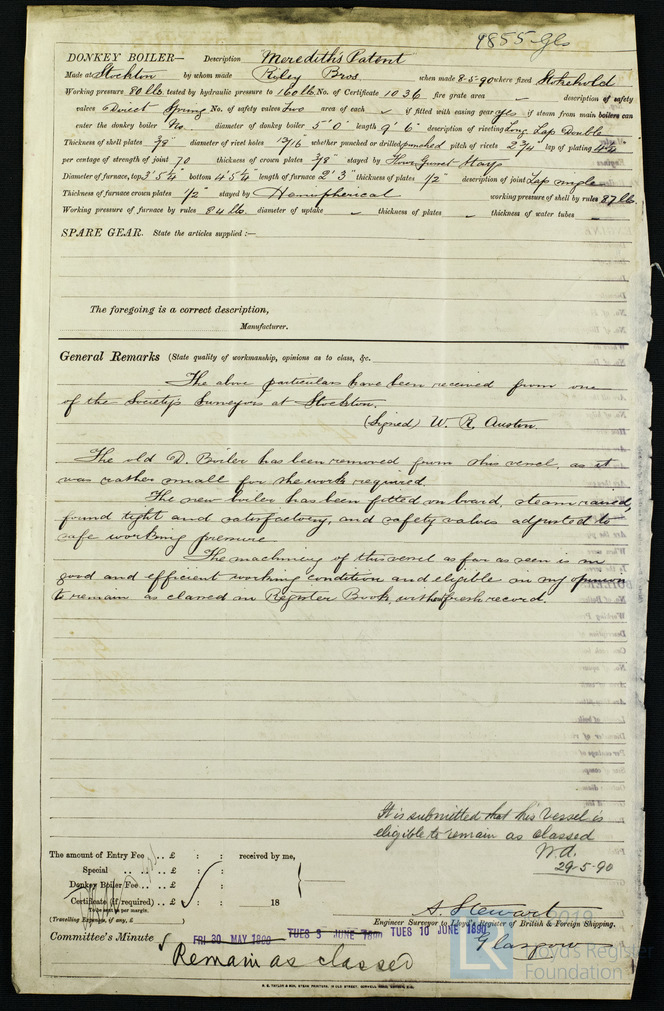 4855 Gls
DONKEY BOILER— Description Meredith's Patent
Made at Stockton by whom made Riley Bros. when made 8-5-90 where fixed Stokehold
Working pressure 80 lb. tested by hydraulic pressure to 160 lb. No. of Certificate 1036 fire grate area – description of safety
valves Direct Spring No. of safety valves Two area of each if fitted with easing gear yes if steam from main boilers can
enter the donkey boiler No diameter of donkey boiler 5' 0" length 9' 6" description of riveting Long Lap Double
Thickness of shell plates 3/8" diameter of rivet holes 13/16" whether punched or drilled punched pitch of rivets 2 3/4" lap of plating
per centage of strength of joint 70 thickness of crown plates 3/8" stayed by Stays
Diameter of furnace, top 3' 5 4" bottom 4' 5 4" length of furnace 2' 3" thickness of plates 1/2" description of joint Lap single
Thickness of furnace crown plates 1/2" stayed by Hemispherical working pressure of shell by rules 87 lb.
Working pressure of furnace by rules 84 lb. diameter of uptake – thickness of plates – thickness of water tubes –
SPARE GEAR. State the articles supplied :—
The foregoing is a correct description,
Manufacturer.
General Remarks (State quality of workmanship, opinions as to class, &c.
The above particulars have been received from one
of the Society's Surveyors at Stockton.
(Signed) W. R. Austin.
The old D. Boiler has been removed from this vessel, as it
was rather small for the work required.
The new boiler has been fitted on board, steam raised,
found tight and satisfactory, and safety valves adjusted to
safe working pressure
The machinery of this vessel as far as seen is in
good and efficient working condition and eligible in my opinion
to remain as classed in Register Book, without fresh record.
It is submitted that this vessel is
eligible to remain as classed
W.A.
29-5-90
The amount of Entry Fee .. £ : : received by me,
Special .. .. £ : :
Donkey Boiler Fee .. .. £ : :
Certificate (if required) .. £ : : 18
To be sent as per margin.
(Travelling Expenses, if any, £ )
A. Stewart
Engineer Surveyor to Lloyd's Register of British & Foreign Shipping.
Committee's Minute FRI 30 MAY 1890 TUES 3 JUNE 1890 TUES 10 JUNE 1890
Glasgow
Remain as classed
2019
LR
Lloyd's Register
Foundation